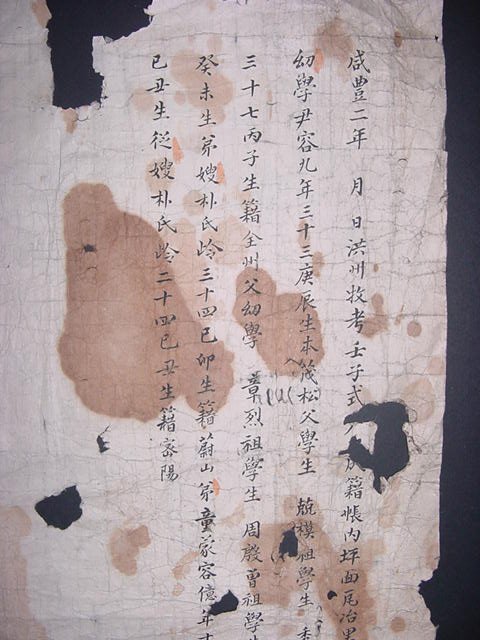 咸豊二年 月 日洪州牧考壬子式 籍帳內坪面尾冶里
幼學尹容九年三十三庚辰生本 松父學生 模祖學生
三十七丙子生籍全州父幼學 章烈祖學生 周殷曾祖學生
癸未生弟嫂朴氏齡三十四己卯生籍蔚山弟童蒙容億年十
己丑生從嫂朴氏齡二十四己丑生籍密陽